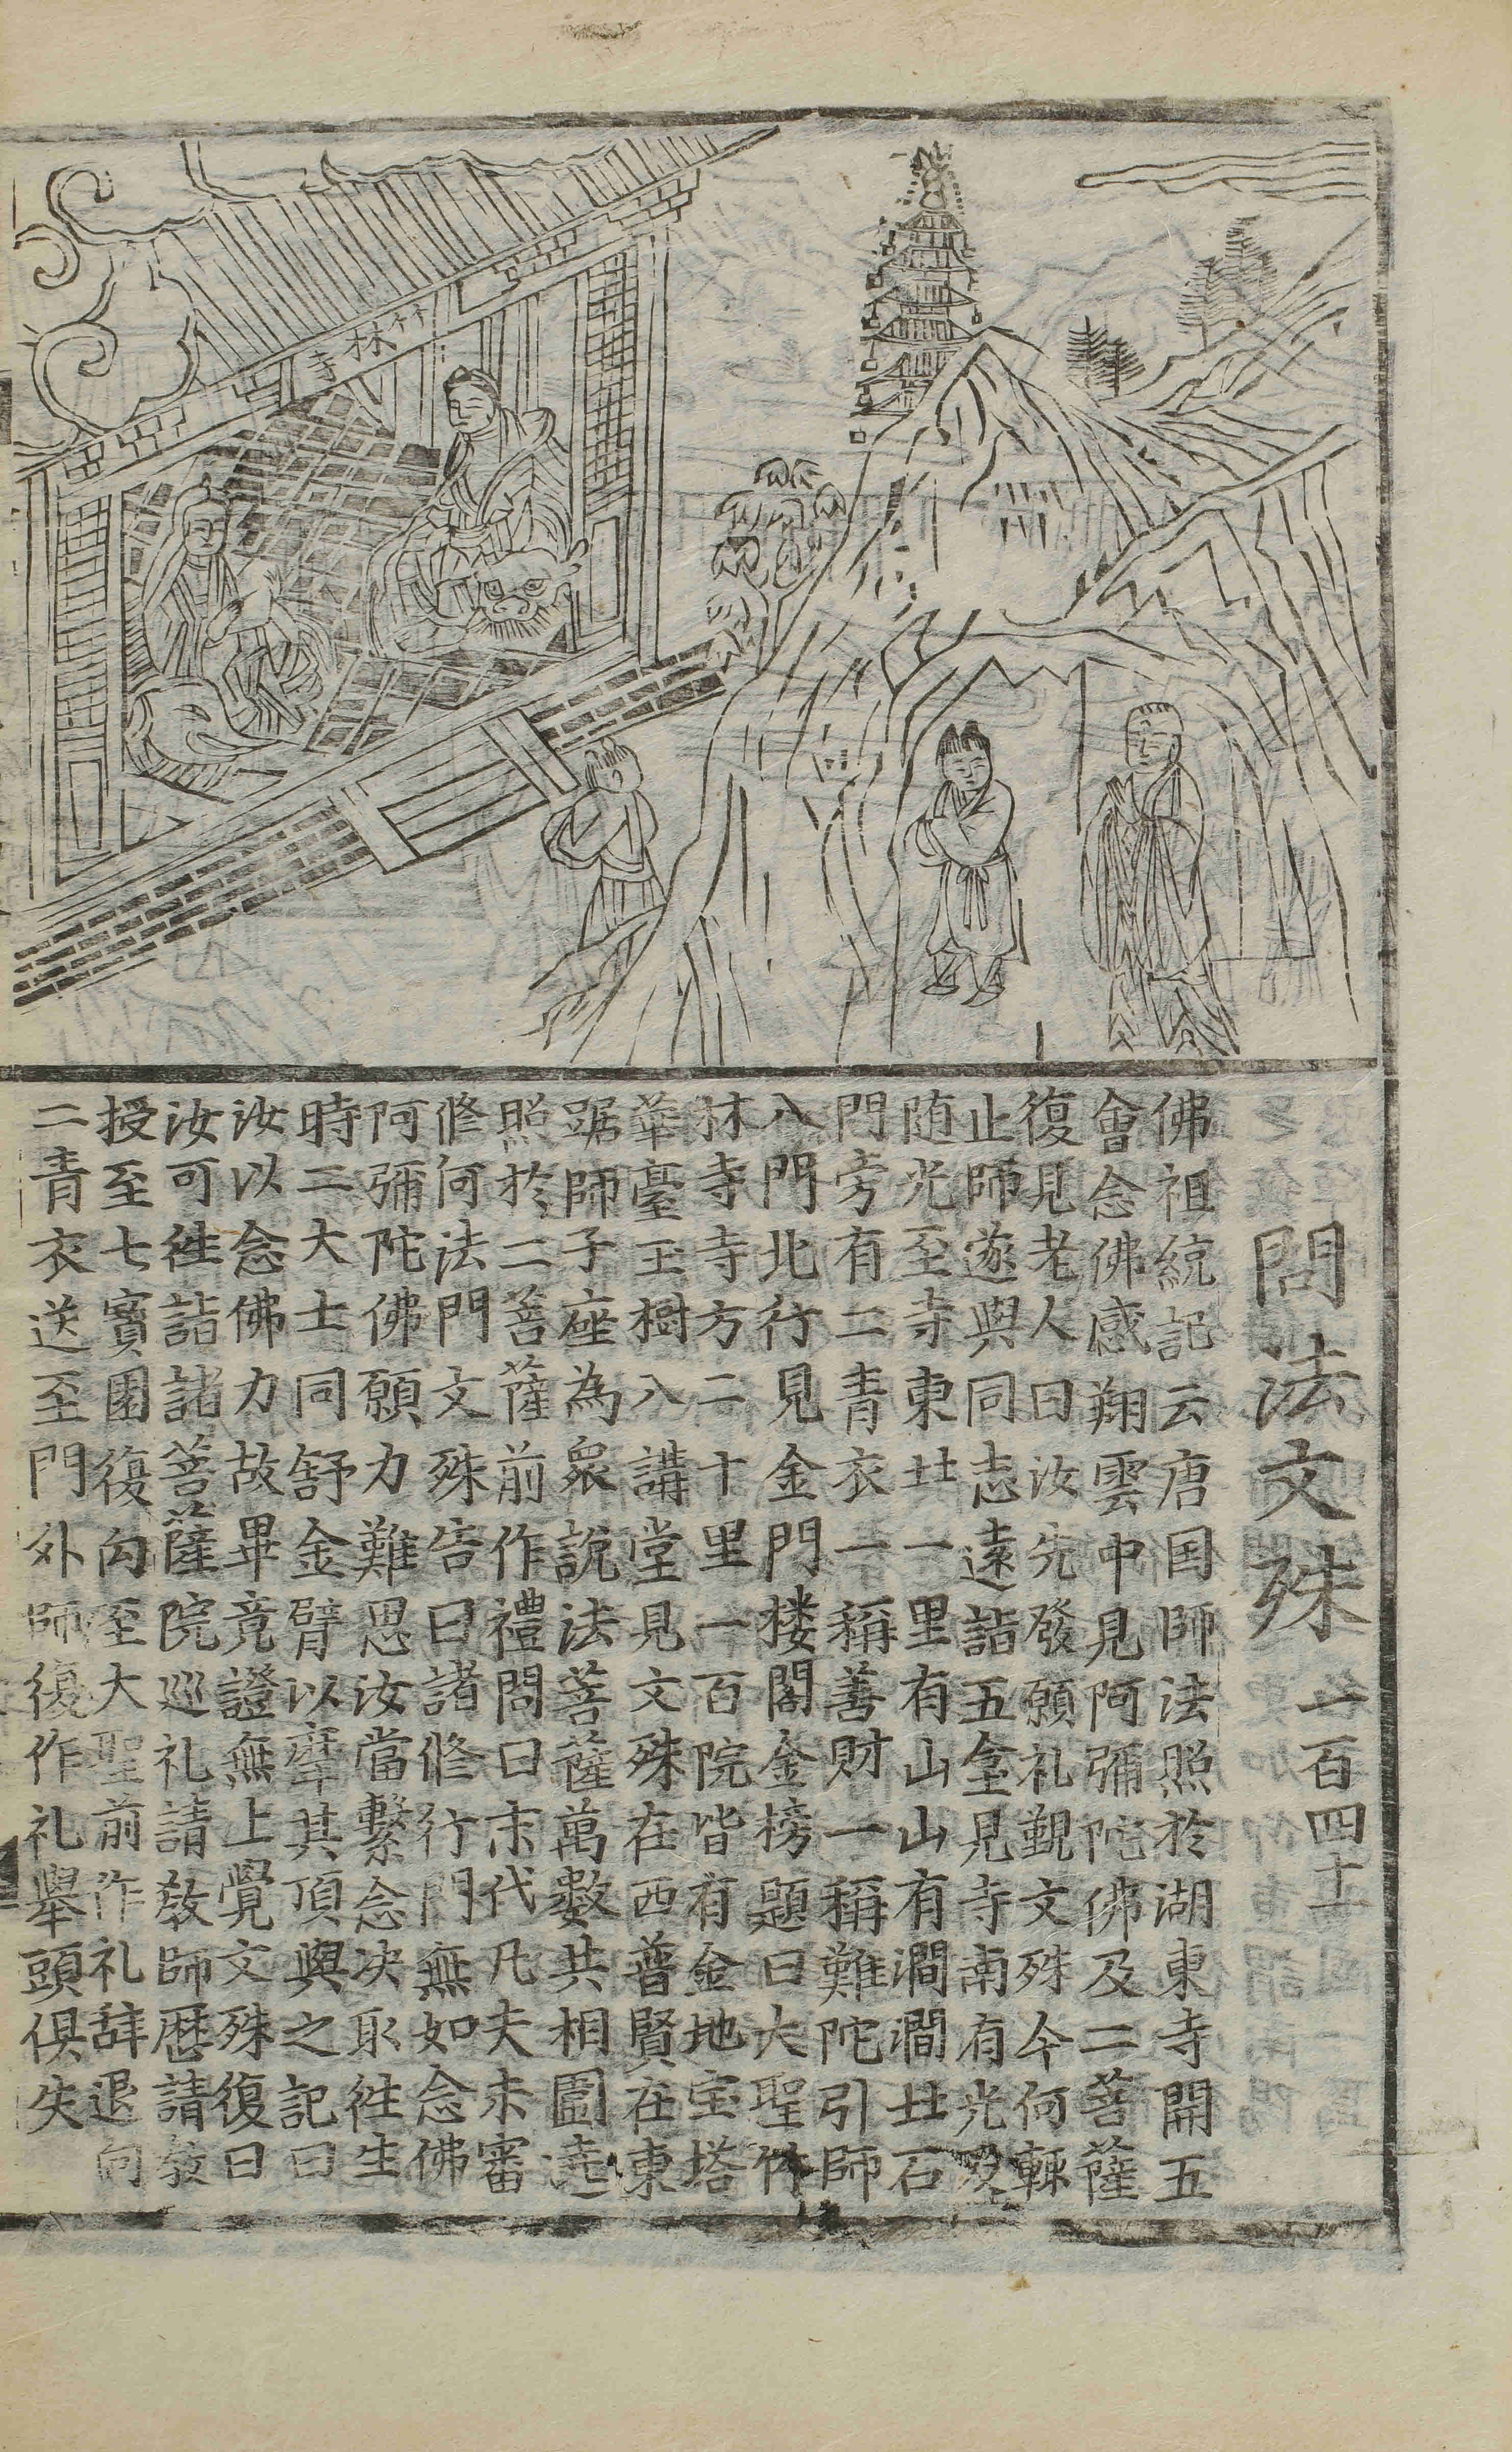 竹林寺
問法文殊 一百四十
佛祖統記云唐国師法照於湖東寺開五
會念佛感翔雲中見阿彌陀佛及二菩薩
復見老人曰汝先發願礼覲文殊今何輙
止師遂與同志遠詣五臺見寺南有光及
随光至寺東北一里有山山有澗澗北石
門旁有二青衣一稱善財一稱難陀引師
八門北行見金門楼閣金榜題曰大聖竹
林寺寺方二十里一百院皆有金地宝塔
華臺玉樹八講堂見文殊在西普賢在東
踞師子座為衆說法菩薩萬數共相圍遶
照於二菩薩前作禮問曰末代凡夫未審
修何法門文殊告曰諸修行門無如念佛
阿彌陀佛願力難思汝當繫念决取徃生
時二大士同舒金臂以摩其頂與之記曰
汝以念佛力故畢竟證無上覺文殊復曰
汝可徃詣諸菩薩院巡礼請教師歴請教
授至七寶園復向至大聖前作礼辞退向
二青衣送至門外師復作礼舉頭俱失